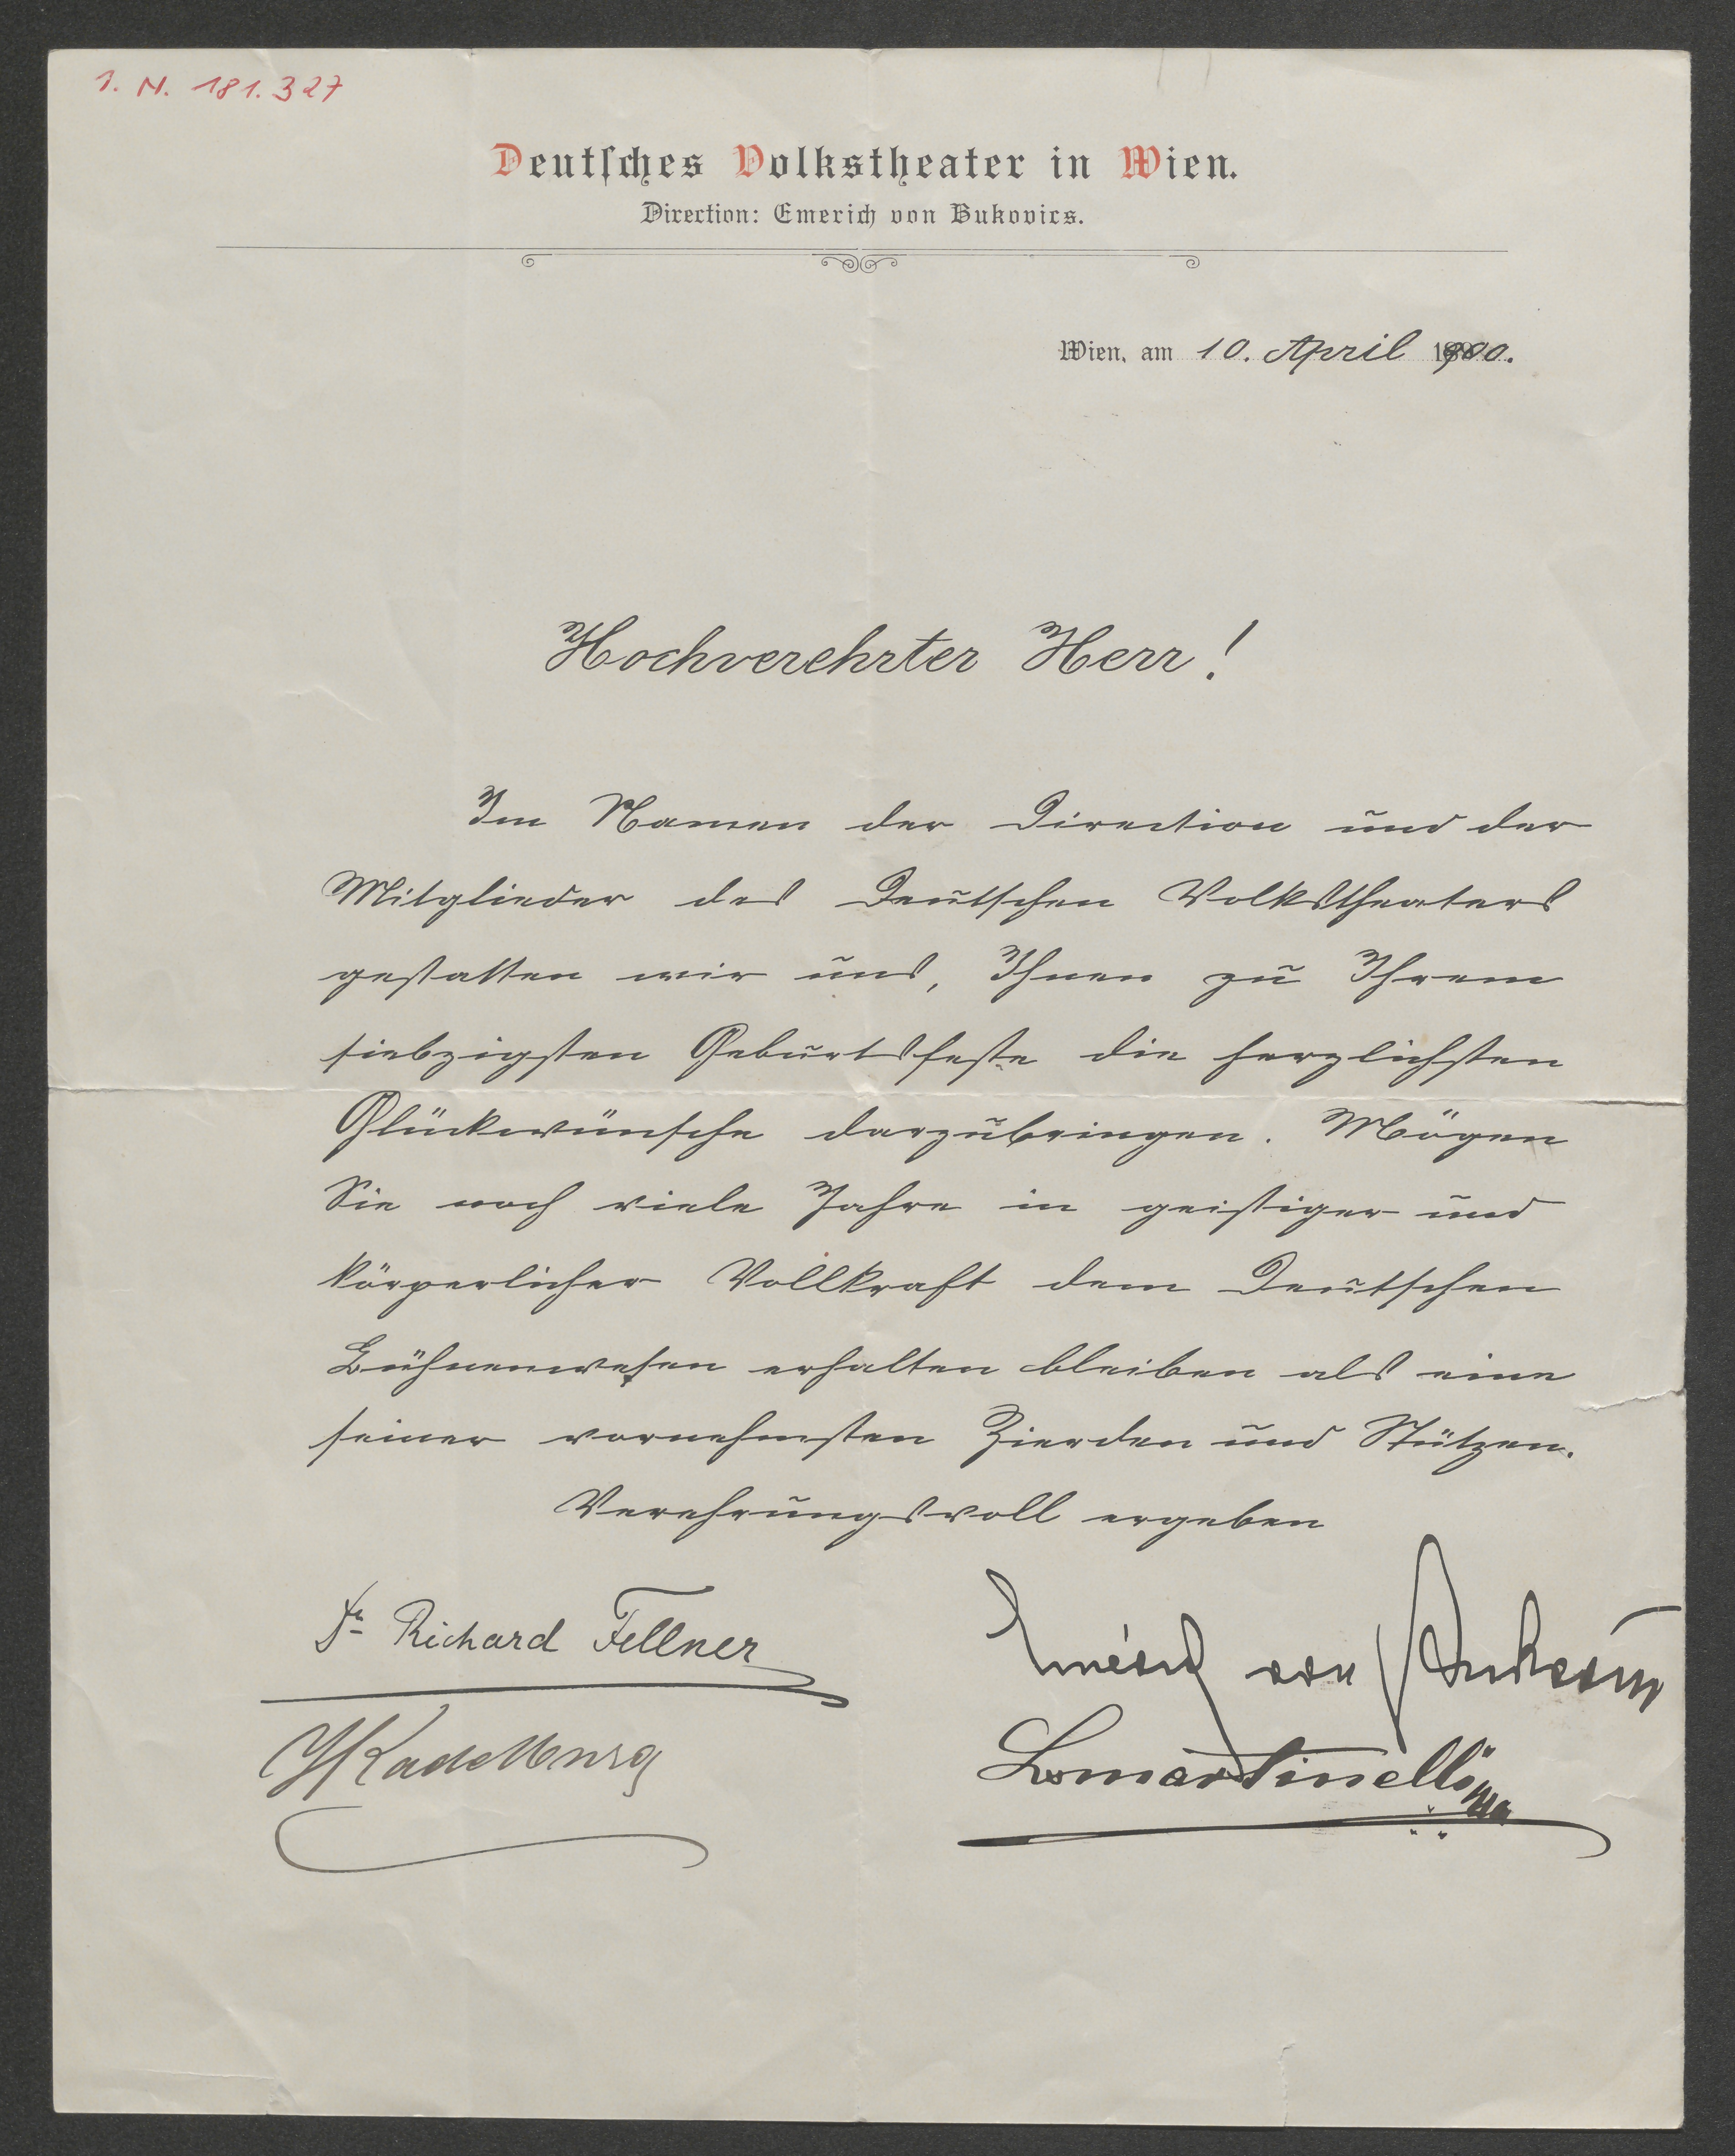 I. N. 181.327
Deutsches Volkstheater in Wien.
Direction: Emerich von Bukovics.
Wien, am 10. April 1900.
Hochverehrter Herr!
Im Namen der Direction und der
Mitglieder des Deutschen Volkstheaters
gestatten wir uns, Ihnen zu Ihrem
siebzigsten Geburtsfeste die herzlichsten
Glückwünsche darzubringen. Mögen
Sie noch viele Jahre in geistiger und
körperlicher Vollkraft dem Deutschen
Bühnenwesen erhalten bleiben als eine
seiner vornehmsten Zierden und Stützen.
Verehrungsvoll ergeben
Dr Richard Fellner
Emerich von Bukovics
HKadelburg
LMartinelli